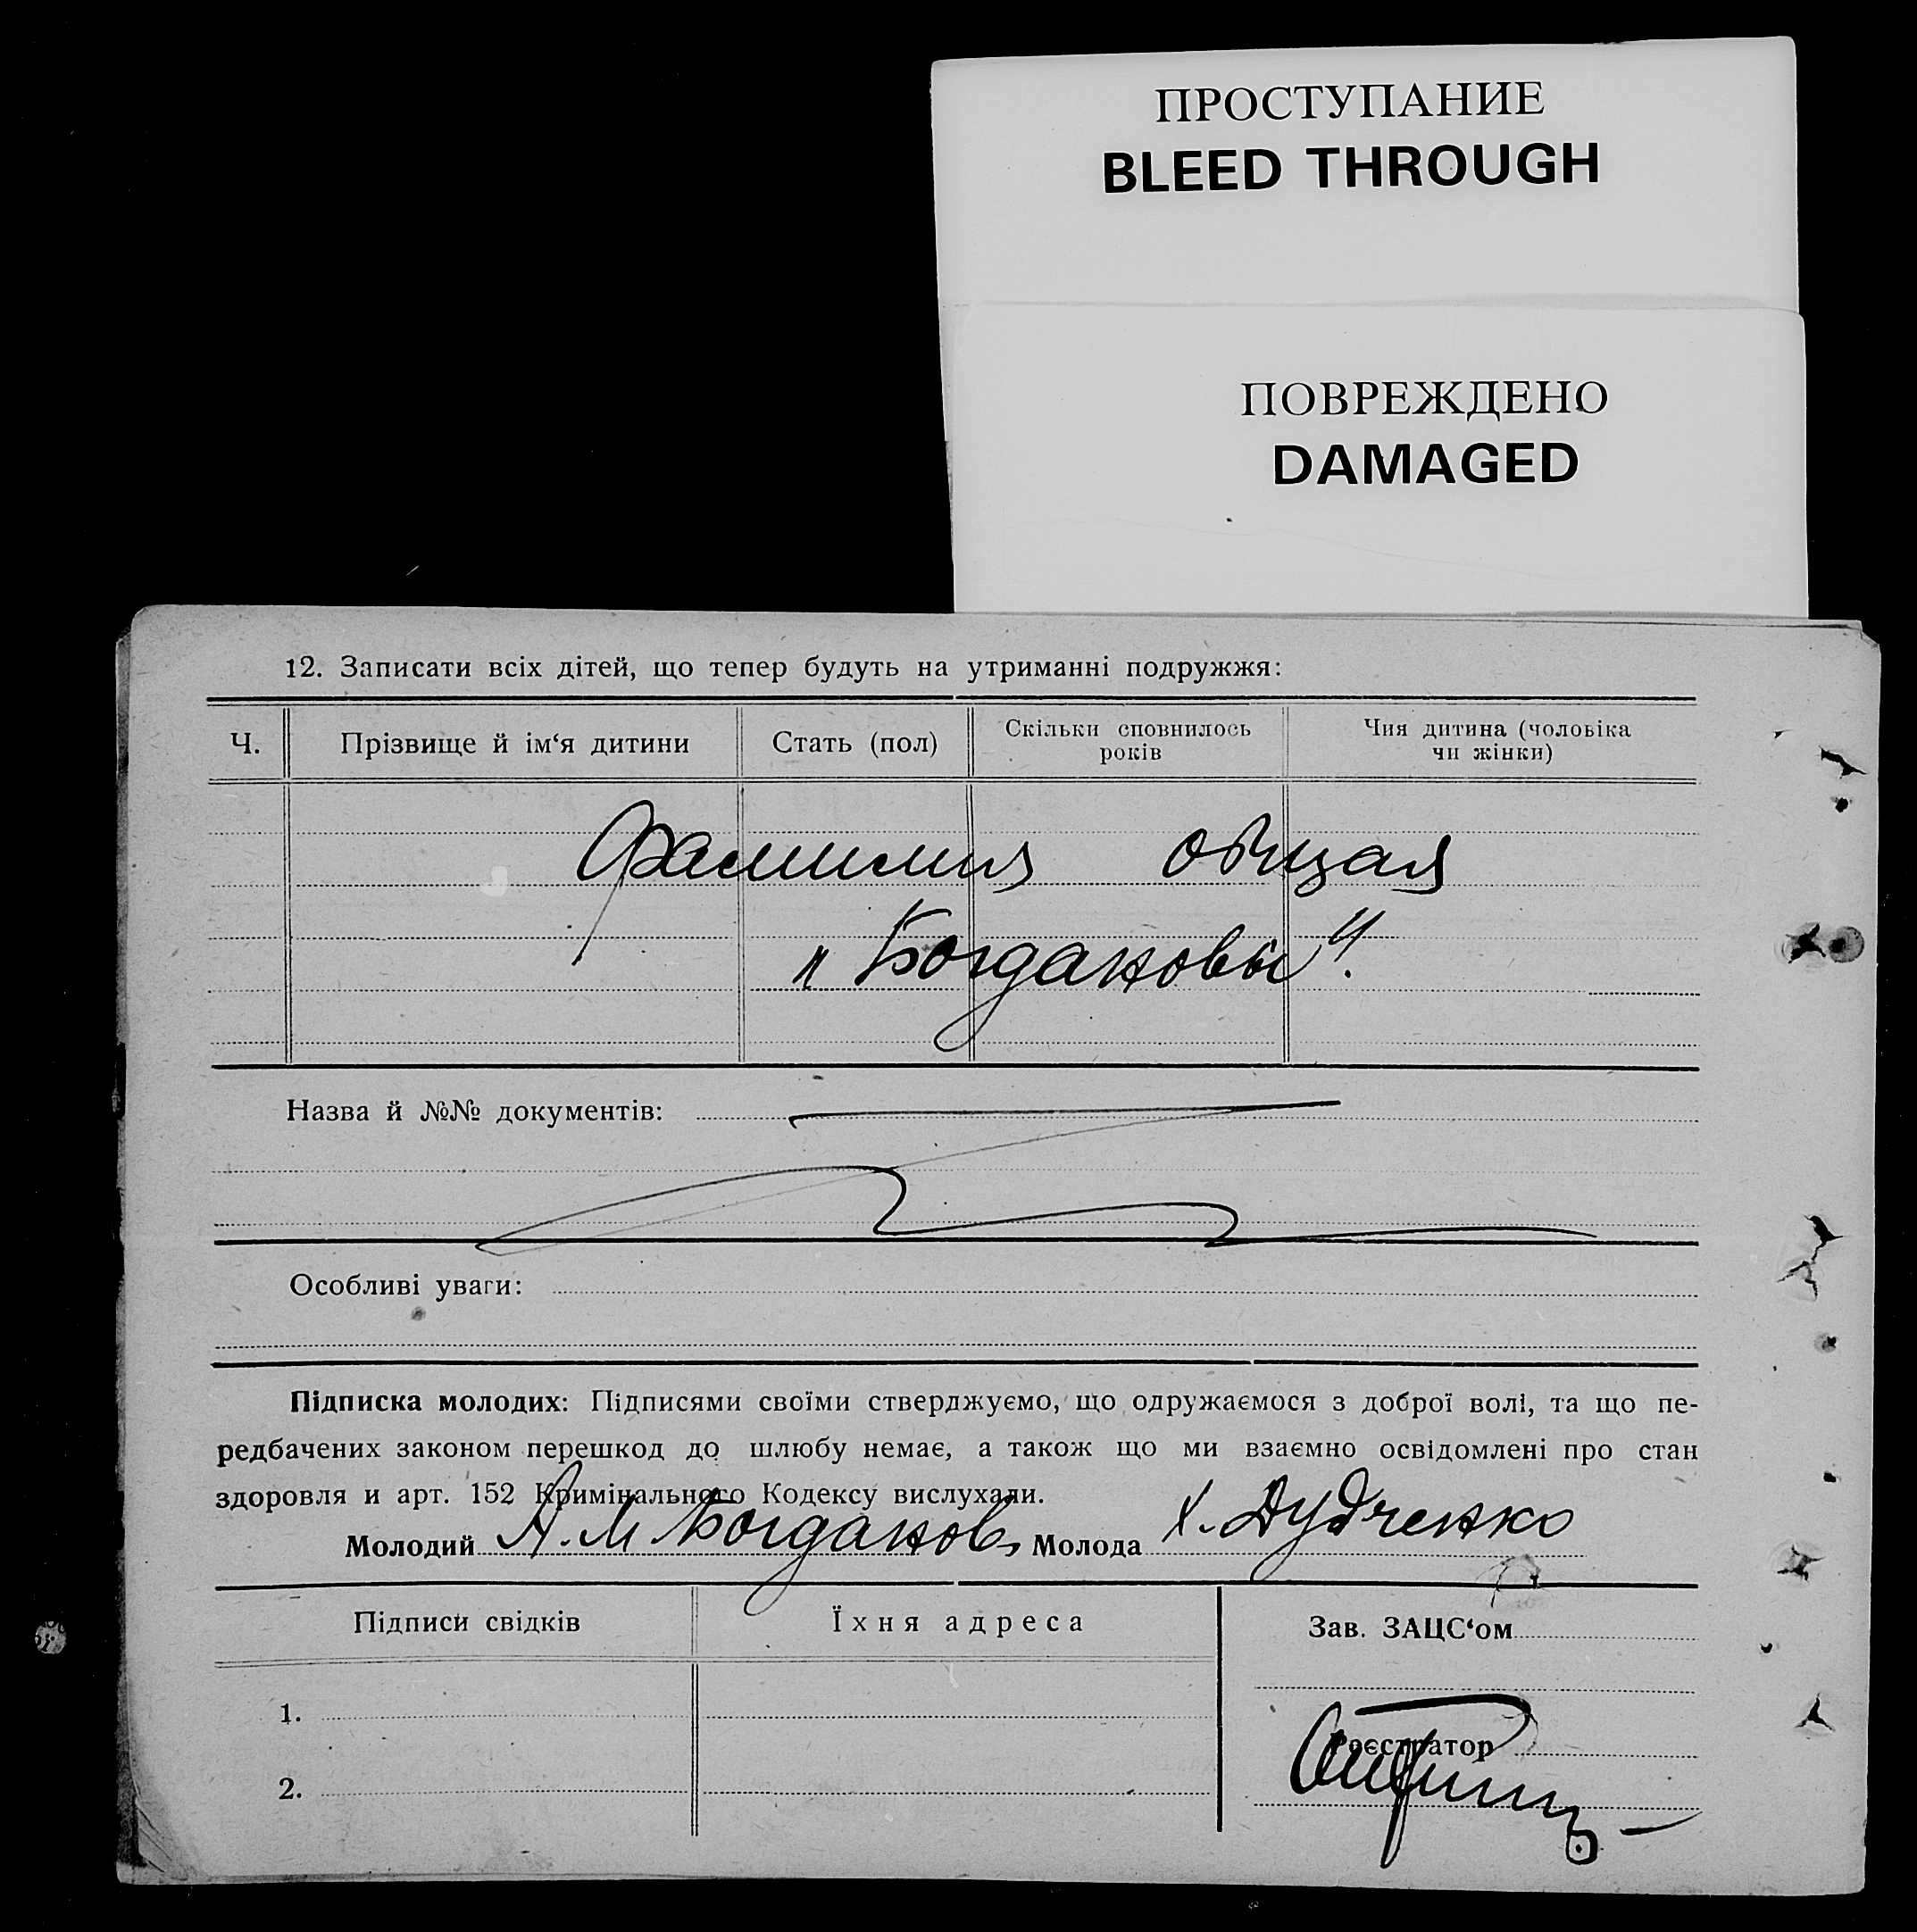 ПРОСТУПАНИЕ
BLEED THROUGH
ПОВРЕЖДЕНО
DAMAGED
12. Записати всіх дітей, що тепер будуть на утриманні подружжя:
Ч. Прізвище й ім‘я дитини Стать (пол) Скільки сповнилось років Чия дитина (чоловіка чи жінки)
Фамилия общая
„Богдановы“.
Назва й №№ документів:
Особливі уваги:
Підписка молодих: Підписями своїми стверджуємо, що одружаємося з доброї волі, та що пе-
редбачених законом перешкод до шлюбу немає, а також що ми взаємно освідомлені про стан
здоровля и арт. 152 Кримінального Кодексу вислухали.
Молодий А. М Богданов Молода Х. Дудченко
Підписи свідків Їхня адреса Зав. ЗАЦС‘ом
1.
Реєстратор
2.